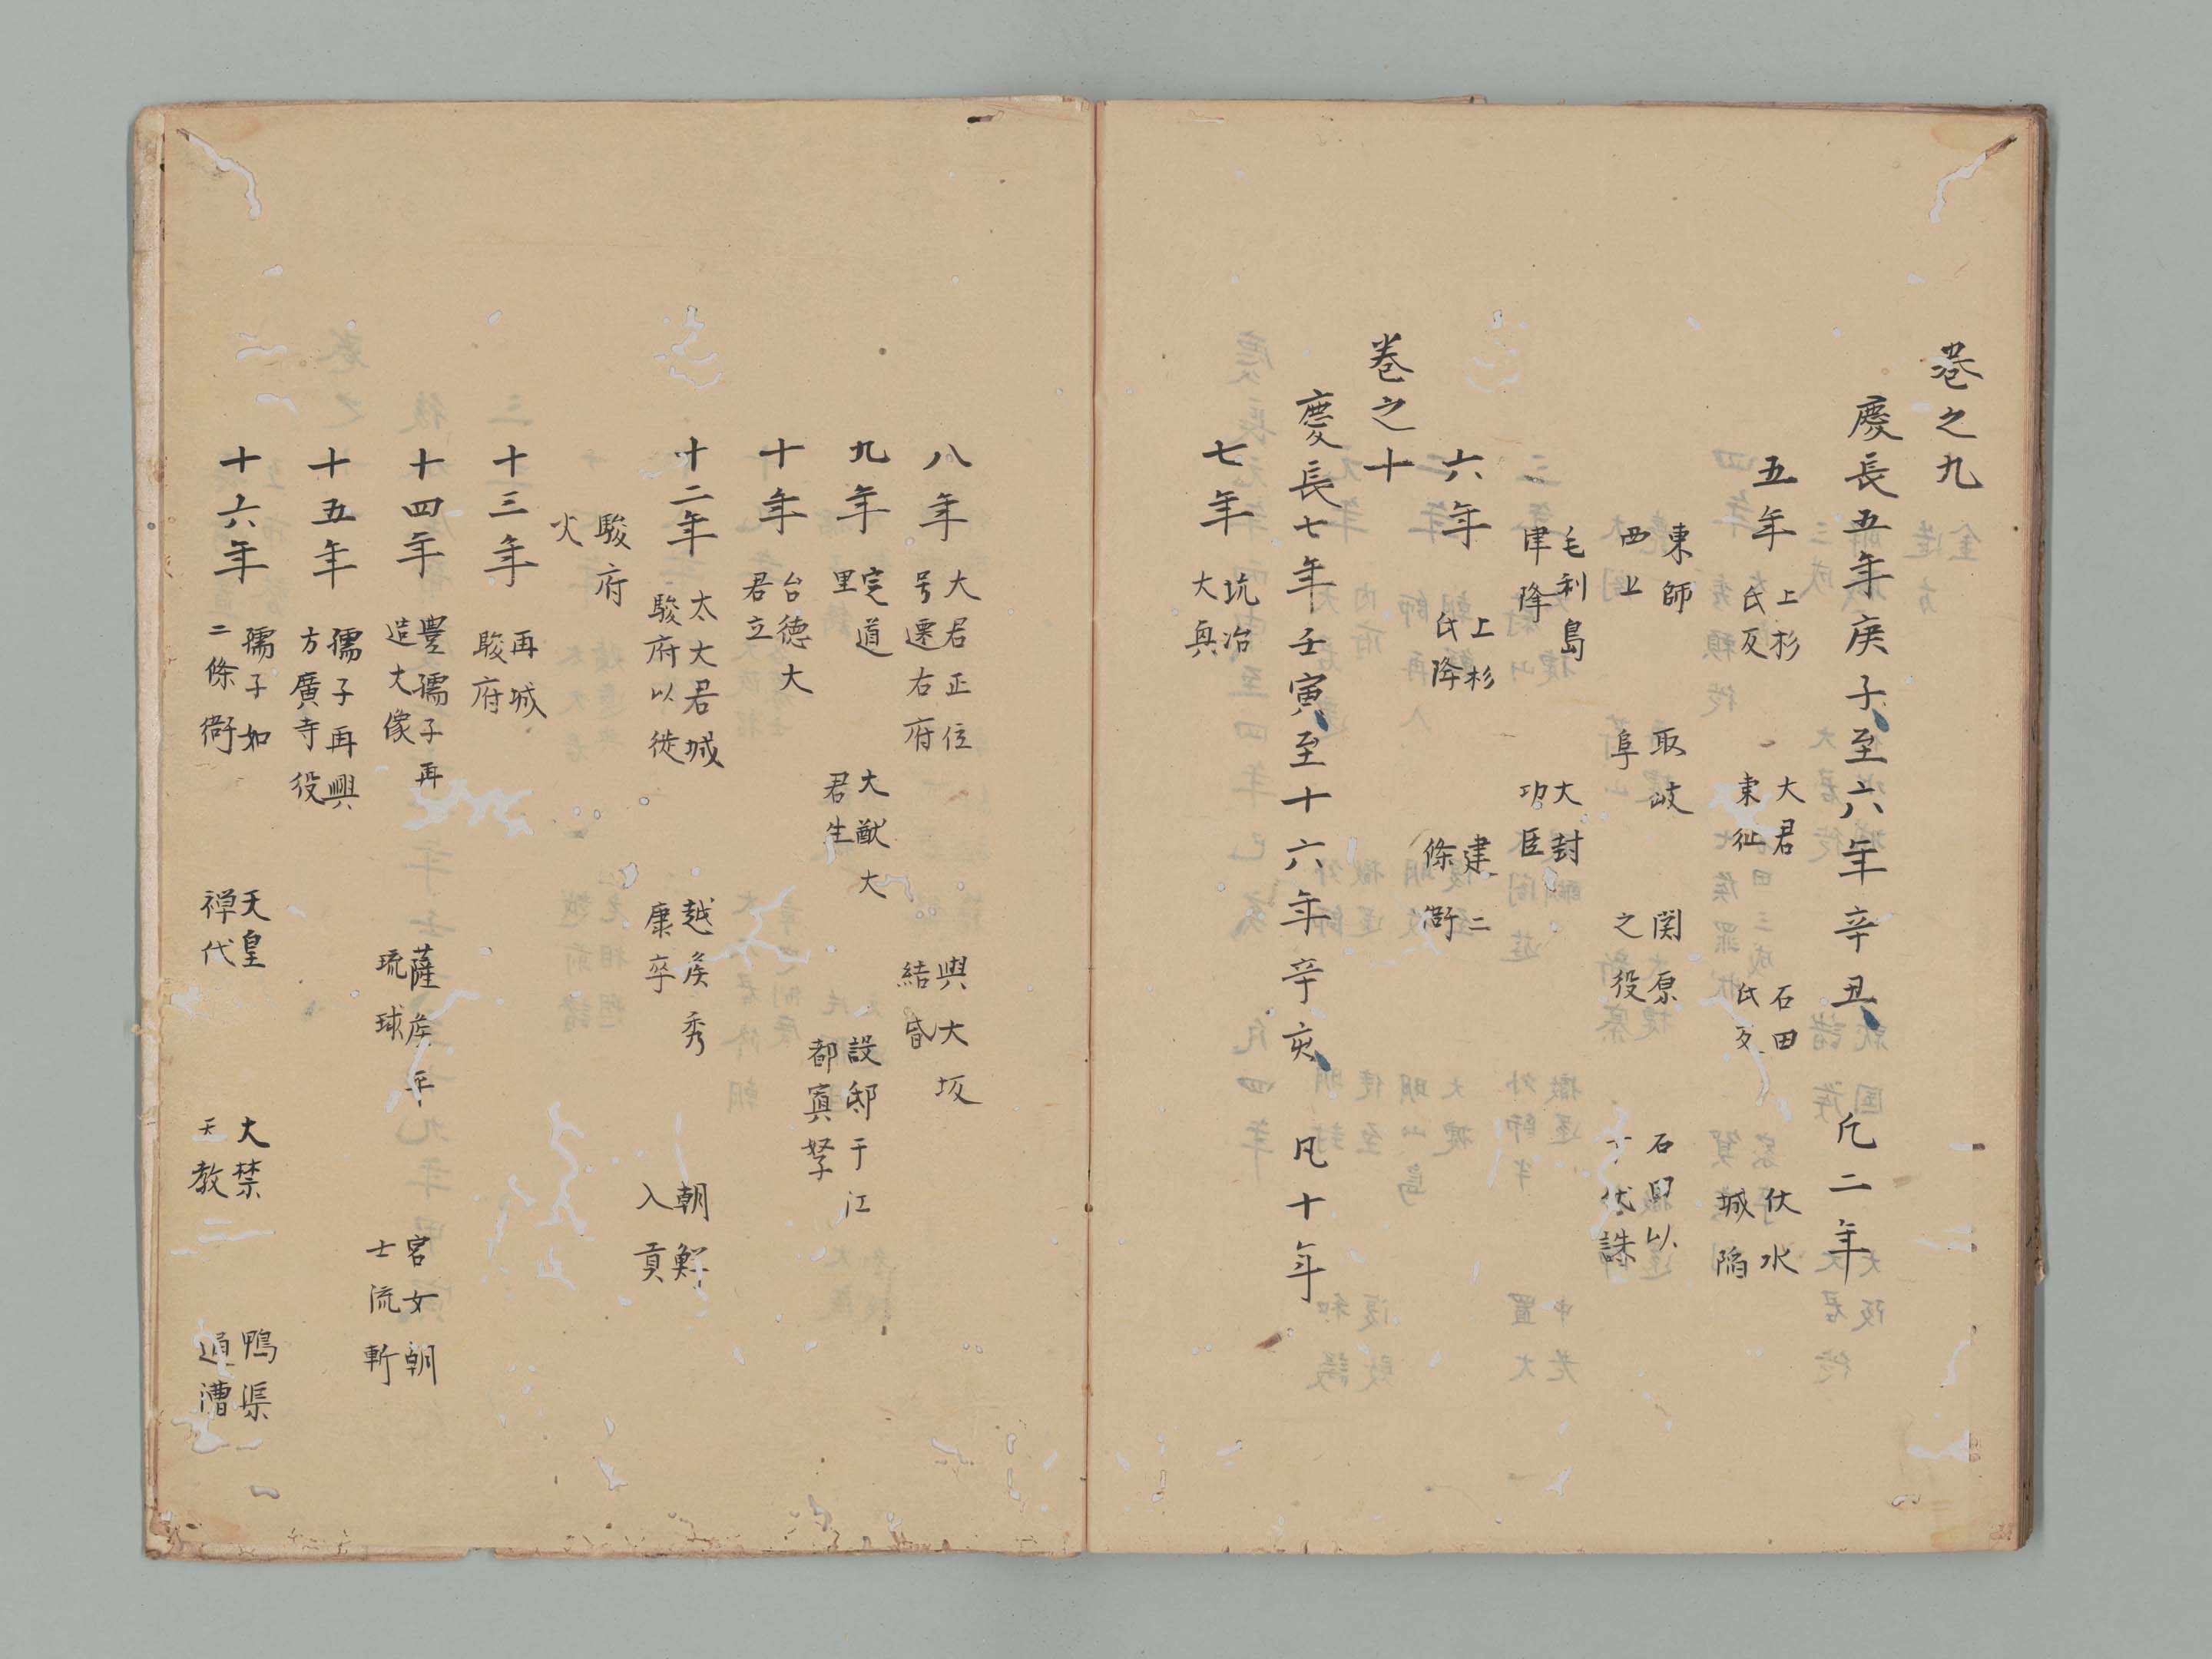 巻之九
慶長五年庚子至六年辛丑 凡二年
五年 上杉氏反 大君東征 石田氏反 伏水城陥
東師西上 取岐阜 関原之役 石田以下伏誅
毛利島津降 大封功臣
六年 上杉氏降 建二條衙
巻之十
慶長七年壬寅至十六年辛亥 凡十年
七年 坑冶大興
八年 大君正位号遷右府 與大坂結昏
九年 定道里 大猷大君生 設邸于江都寘孥
十年 台徳大君立
十二年 太大君城駿府以徙 越矦秀康卒 朝鮮入貢
駿府火
十三年 再城駿府
十四年 豊孺子再造大像 薩矦平琉球 宮女朝士流斬
十五年 孺子再興方廣寺役
十六年 孺子如二條衙 天皇禅代 大禁天教 鴨渠通漕